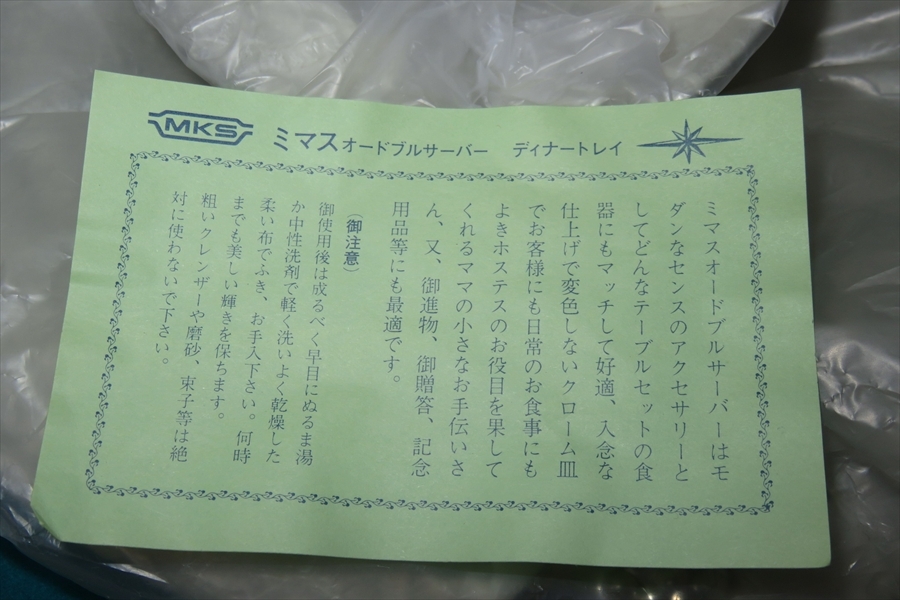 MKS
ミマスオードブルサーバー ディナートレイ
ミマスオードブルサーバーはモ
ダンなセンスのアクセサリーと
してどんなテーブルセットの食
器にもマッチして好適、入念な
仕上げで変色しないクローム皿
でお客様にも日常のお食事にも
よきホステスのお役目を果して
くれるママの小さなお手伝いさ
ん、又、御進物、御贈答、記念
用品等にも最適です。
(御注意)
御使用後は成るべく早目にぬるま湯
か中性洗剤で軽く洗いよく乾燥した
柔い布でふき、お手入下さい。何時
までも美しい輝きを保ちます。
粗いクレンザーや磨砂、束子等は絶
対に使わないで下さい。